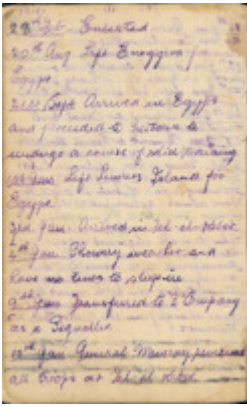 28th Feb Enlisted
20th Aug Left Enoggera for
Egypt.
21st Sept Arrived in Egypt
and proceeded to Zeitoun to
undergo a course of said training
Left Lemnos Island for
Egypt
3rd Jan. Arrived in Tel-el-Kebir
4th Jan Showery weather and
have no tents to sleep in
9th Jan Transferred to C Company
as a Signaller
10th Jan General Murray reviewed
all troops at Tel el Kebir